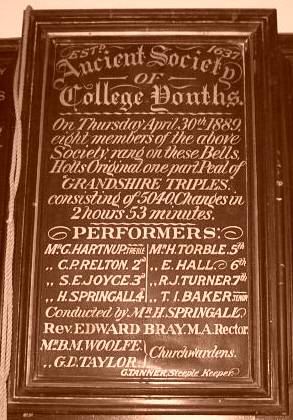 ESTD. 1637
Ancient Society
OF
College Youths.
On Thursday April 30th 1889,
eight members of the above
Society, rang on these Bells,
Holts Original one part Peal of
GRANDSHIRE TRIPLES.
consisting of 5040 Changes in
2 hours 53 minutes.
PERFORMERS:
Mr. G. HARTNUP. TREBLE Mr. H. TORBLE. 5th
,, C.P. RELTON. 2nd ,, E. HALL. 6th
,, S.E. JOYCE. 3rd ,, R.J. TURNER. 7th
,, H. SPRINGALL 4 ,, T.I. BAKER TENOR
Conducted by Mr. H. SPRINGALL
Rev. EDWARD BRAY, M.A. Rector.
Mr. B.M. WOOLFE.
,, G.D. TAYLOR. Churchwardens.
G. TANNER, Steeple Keeper.